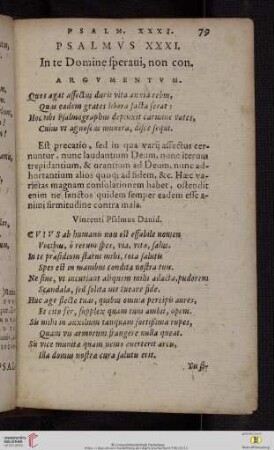 PSALM. XXXI. 79
PSALMVS XXXI.
In te Domine speraui, non con.
ARGVMENTVM.
Quos agat affectus duris vita anxia rebus,
Quas eadem grates libera facta ferat:
Hoc tibi Psalmographus depinxit carmine vates,
Cuius vt agnoscas munera, disce sequi.
Est precatio, sed in qua varij affectus cer-
nuntur, nunc laudantium Deum, nunc iterum
trepidantium, & orantium ad Deum, nunc ad-
hortantium alios quoq; ad fidem, &c. Hæc va-
rietas magnam consolationem habet, ostendit
enim ne sanctos quidem semper eadem esse a-
nimi firmitudine contra mala.
Vincenti Psalmus Dauid.
CVIVS ab humano non est effabile nomen
Vocibus, ô rerum spes, via, vita, salus.
In te præsidium statui mihi, tota salutis
Spes est in manibus condita nostra tuis.
Ne sine, vt incutiant aliquem mihi adacta, pudorem
Scandala, sed solita me tueare fide.
Huc age flecte tuas, quibus omnia percipis aures,
Et cito fer, supplex quam tuus ambit, opem.
Sis mihi in auxilium tanquam fortissima rupes,
Quam vis armorum frangere nulla queat.
Sis vice munita quam nemo euerterit arcis,
Illa domus nostræ cura salutis erit.